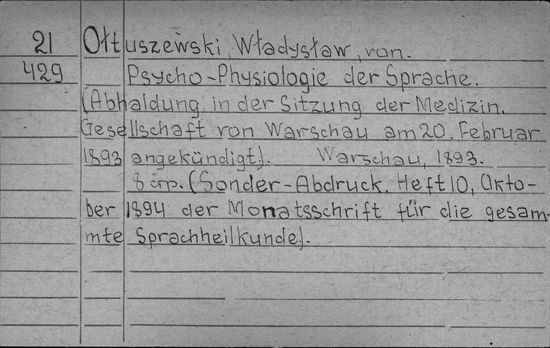 21 Ołtuszewski, Władysław, von.
429 Psycho-Physiologie der Sprache.
(Abhaldung in der Sitzung der Medizin.
Gesellschaft von Warschau am 20. Februar
1893 angekündigt). Warschau, 1893.
8 стр. (Sonder-Abdruck. Heft 10, Okto-
ber 1894 der Monatsschrift für die gesam-
mte Sprachheilkunde).